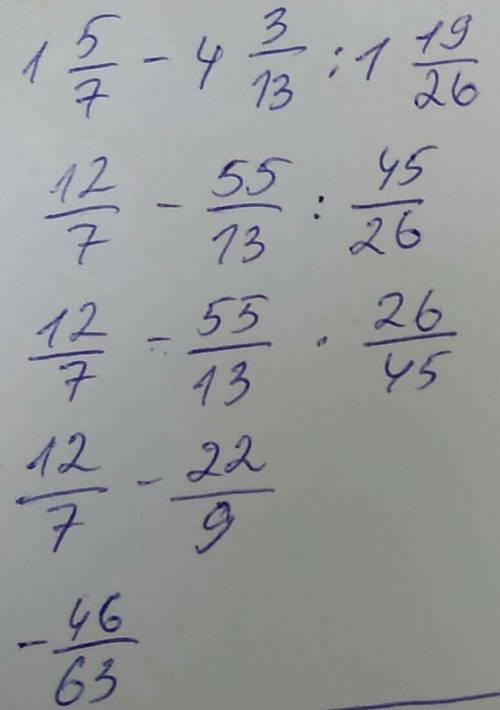 1 5/7 - 4 3/13 : 1 19/26
12/7 - 55/13 : 45/26
12/7 - 55/13 · 26/45
12/7 - 22/9
- 46/63